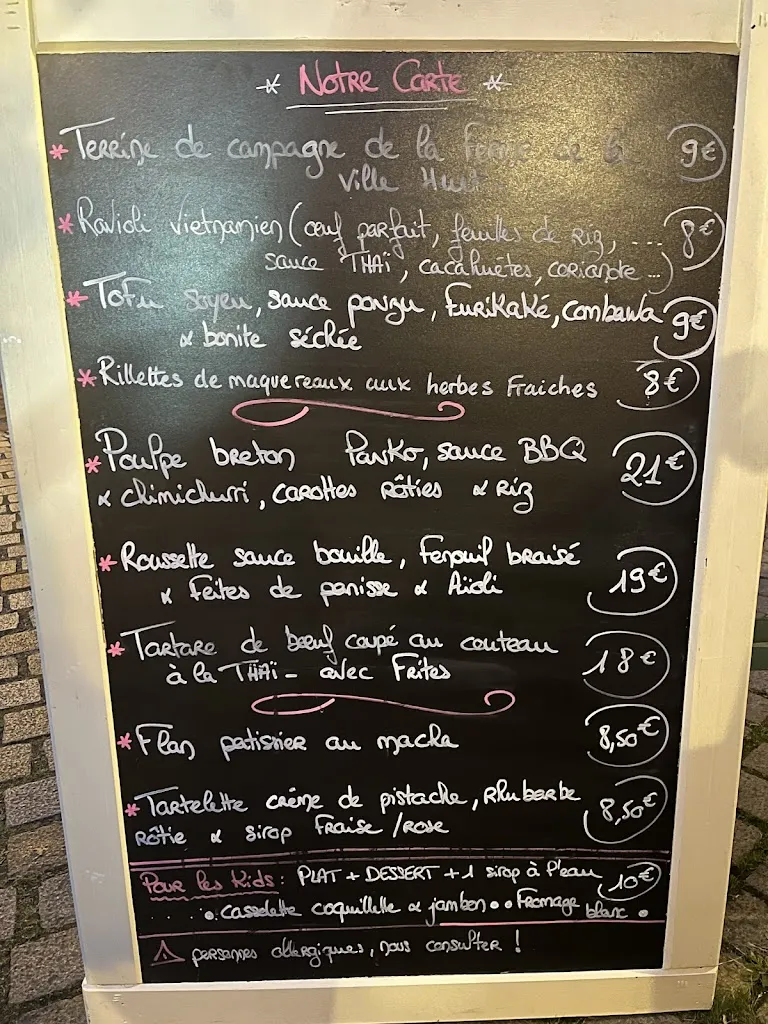 * Notre Carte *
* Terrine de campagne de la ferme de la 9€
Ville Huet
* Ravioli vietnamien (œuf parfait, feuilles de riz, ... 8€
sauce THAÏ, cacahuètes, coriandre...)
* Tofu soyeu, sauce ponzu, Furikaké, combawa 9€
& bonite séchée
* Rillettes de maquereaux aux herbes Fraiches 8€
* Poulpe breton Panko, sauce BBQ 21€
& chimichurri, carottes rôties & Riz
* Roussette sauce bouille, Fenouil braisé 19€
& Feites de panisse & Aïoli
* Tartare de bœuf coupé au couteau 18€
à la THAÏ - avec Frites
* Flan patissier au matcha 8,50€
* Tartelette crème de pistache, Rhubarbe 8,50€
Rôtie & sirop Fraise/rose
Pour les Kids: PLAT + DESSERT + 1 sirop à l'eau 10€
. . . . • cassolette coquillette & jambon • • Fromage blanc •
⚠ personnes allergiques, nous consulter !